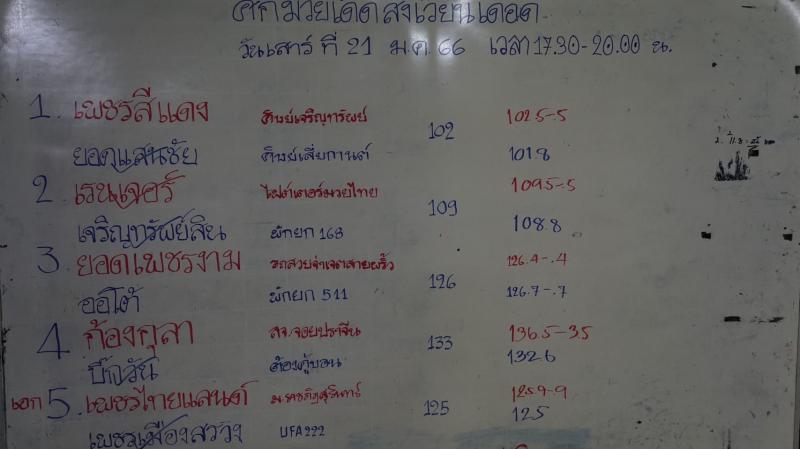 ศึกมวยเด็ดสังเวียนเดือด
วันเสาร์ ที่ 21 ม.ค. 66 เวลา 17.30-20.00 น.
1. เพชรสีแดง ศิษย์เจริญทรัพย์ 102 102.5-.5
ยอดแสนชัย ศิษย์เสี่ยกานต์ 101.8
2. เรนเจอร์ ไฟต์เตอร์มวยไทย 109 109.5-.5
เจริญทรัพย์สิน ผักยก 168 108.8
3. ยอดเพชรงาม รถสวยจ่าเจตสายผรั้ว 126 126.4-.4
ออโต้ ผักยก 511 126.7-.7
4. ก้องกุลา สจ.จอยปราจีน 133 136.5-3.5
บิ๊กวัน ต้องกู้บอน 132.6
เอก 5. เพชรไทยแลนด์ ม.ราชภัฏสุรินทร์ 125 125.9-.9
เพชรเมืองสวาง UFA222 125